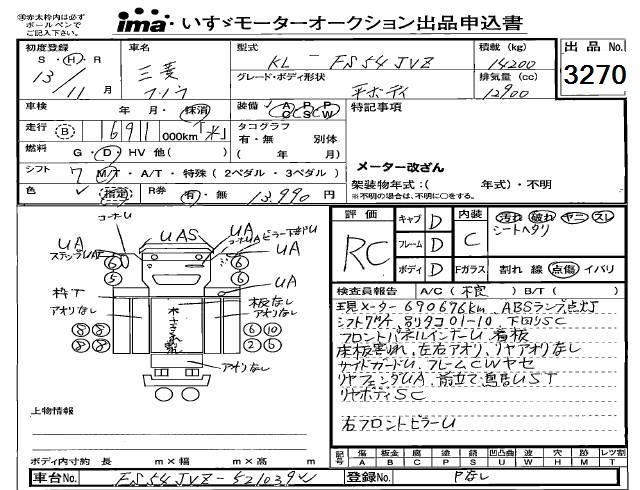 ※赤太枠内は必ず
ボールペンで
ご記入下さい。
ima いすゞモーターオークション出品申込書
初度登録
S・H・R
13/11 月
車名
三菱
フソウ
型式
KL-FS54JVZ
積載(kg)
14200
グレード・ボディ形状
平ボディ
排気量(cc)
12900
出品No.
3270
車検 年・月・抹消
装備 AC PS PW
特記事項
走行 B 1691 000km
タコグラフ
有・無 別体
( 年 月)
燃料 G・D・HV 他( )
メーター改ざん
シフト 7 M/T・A/T・特殊(2ペダル・3ペダル)
架装物年式:( 年式)・不明
※不明の場合は、不明に○をする。
色 R券 有・無 13,990円
評価
RC
キャブ D
フレーム D
ボディ D
内装
C
Fガラス
汚れ 破れ ヤニ スレ
シートヘタリ
割れ 線 点傷 イバリ
検査員報告 A/C(不良) B/T( )
現メーター690676km、ABSランプ点灯
01-10 下回りSC
フロントパネルインナーU 看板
床板割れ、左右アオリ、リヤアオリなし
サイドガードU、フレームCWヤセ
リヤフェンダUA、
リヤボディSC
右フロントピラーU
コーナーU
UA
ステップUA
UAS
コーナーUA
ピラー下部U
UA
UA
枠下
アオリなし
板なし
アオリなし
アオリなし
6
5
6
6
8 8
8 8
6 10
2 6
上物情報
ボディ内寸約 長 m×幅 m×高 m
記号
傷 A
板金 B
腐 C
塗 P
錆 S
凹凸曲 U
波 W
穴 H
跡 M
レツ割 T
車台No. FS54JVZ-521039
登録No. Pなし